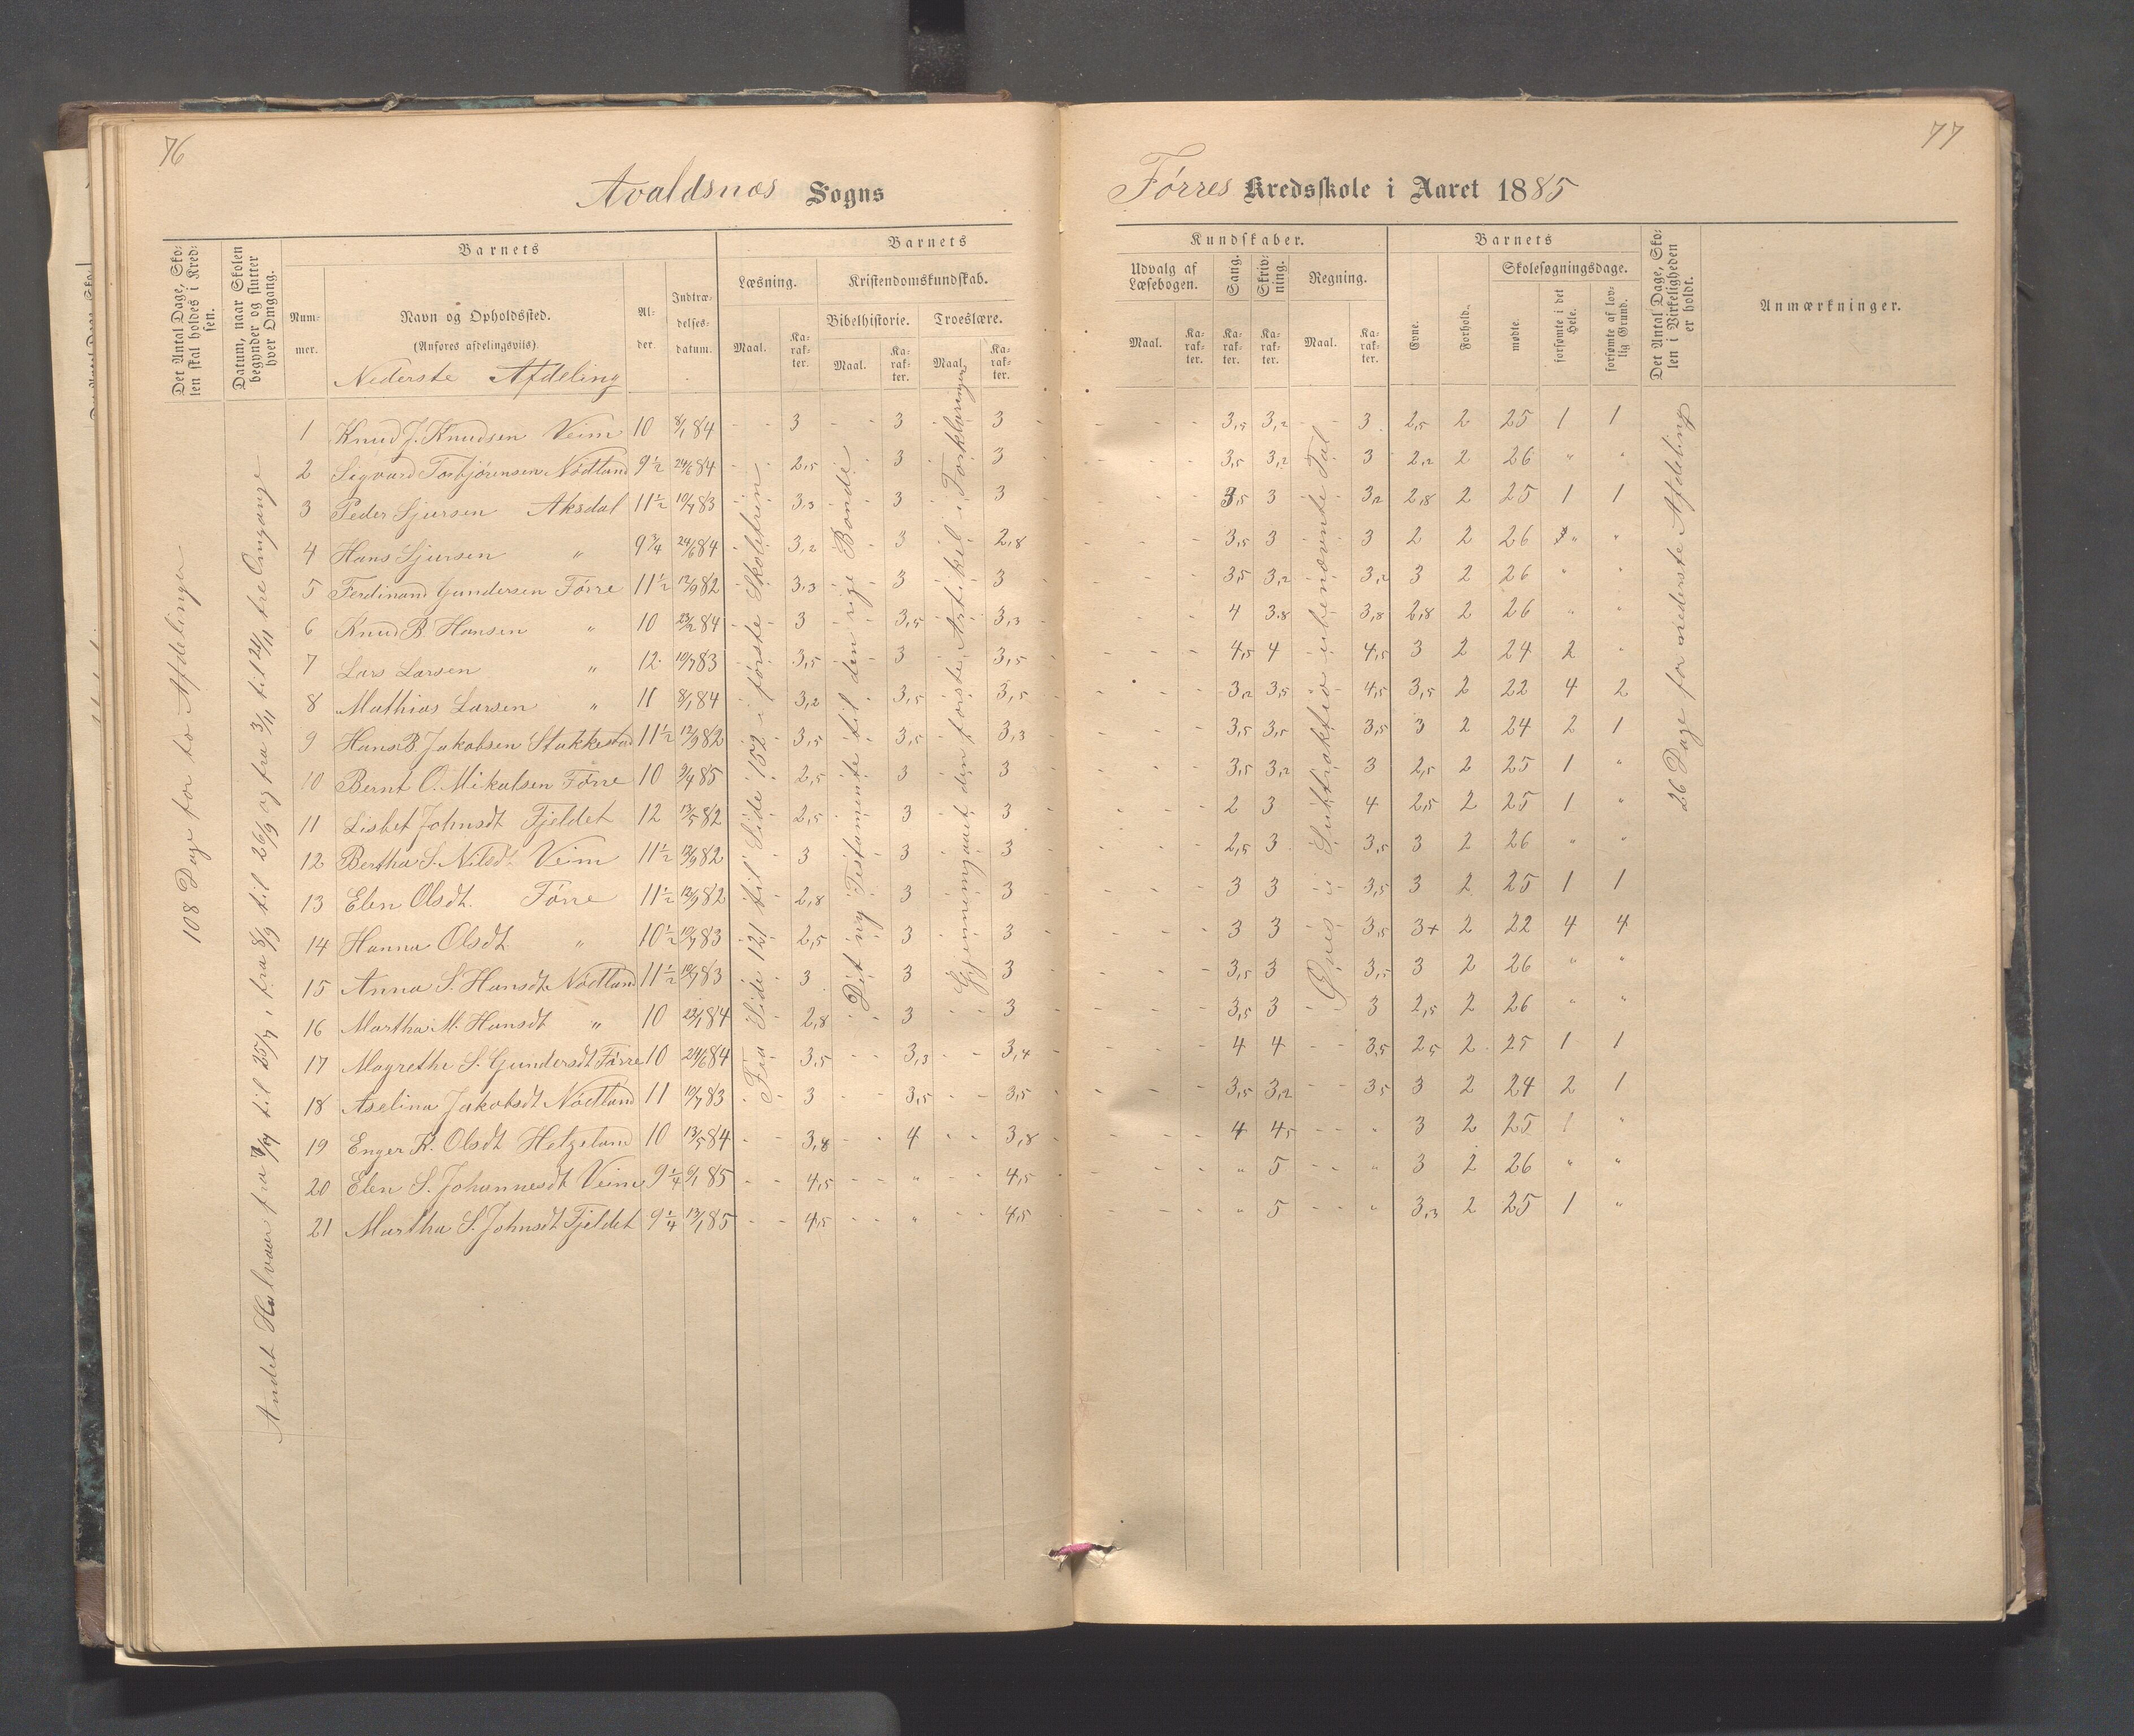 76
Avaldsnes Sogns
Det Antal Dage, Sko-
len skal holdes i Kred-
sen.
Datum, naar Skolen
begynder og slutter
hver Omgang.
Barnets
Num-
mer.
Navn og Opholdssted.
(Anføres afdelingsviis).
Nederste Afdeling
Al-
der.
Indtræ-
delses-
datum.
Barnets
Læsning.
Maal.
Ka-
rak-
ter.
Kristendomskundskab.
Bibelhistorie.
Troeslære.
Maal.
Ka-
rak-
ter.
Maal.
Ka-
rak-
ter.
108 Dage for to Afdelinger
Andet Halvaar fra til 25/7, fra 8/9 til 26/9 og fra 3/11 til 24/11 tre Omgange
Fra Side 121 til Side 152 i første Skoletrin
Det ny Testamente til den rige Bonde
Gjennemgaaet den første Artikel i Forklaringen
1 Knud J. Knudsen Veim 10 8/1 84 - - 3 - - 3 - - 3
2 Sigvard Torbjørnsen Nødland 9 1/2 24/6 84 - - 2,5 - - 3 - - 3
3 Peder Sjursen Aksdal 11 1/2 10/7 83 - - 3,3 - - 3 - - 3
4 Hans Sjursen " 9 3/4 24/6 84 - - 3,2 - - 3 - - 2,8
5 Ferdinand Gundersen Førre 11 1/2 12/9 82 - - 3,3 - - 3 - - 3
6 Knud B. Hansen " 10 23/2 84 - - 3 - - 3,5 - - 3,3
7 Lars Larsen " 12 10/7 83 - - 3,5 - - 3 - - 3,5
8 Mathias Larsen " 11 8/1 84 - - 3,2 - - 3,5 - - 3,5
9 Hans B. Jakobsen Stakkestad 11 1/2 12/9 82 - - 3,5 - - 3,5 - - 3,3
10 Bernt O. Mikalsen Førre 10 9/4 85 - - 2,5 - - 3 - - 3
11 Lisbet Johnsdt Fjeldet 12 13/5 82 - - 2,5 - - 3 - - 3
12 Bertha S. Nilsdt. Veim 11 1/2 12/9 82 - - 3 - - 3 - - 3
13 Elen Olsdt. Førre 11 1/2 12/9 82 - - 2,8 - - 3 - - 3
14 Hanna Olsdt. " 10 1/2 10/7 83 - - 2,5 - - 3 - - 3
15 Anna S. Hansdt. Nødland 11 1/2 10/7 83 - - 3 - - 3 - - 3
16 Martha M. Hansdt " 10 23/1 84 - - 2,8 - - 3 - - 3
17 Magrethe S. Gundersdt Førre 10 24/6 84 - - 3,5 - - 3,3 - - 3,4
18 Aselina Jakobsdt Nødland 11 10/7 83 - - 3 - - 3,5 - - 3,5
19 Enger K. Olsdt Hetzeland 10 13/5 84 - - 3,8 - - 4 - - 3,8
20 Elen S. Johannesdt Veim 9 1/4 9/1 85 - - 4,5 - - " - - 4,5
21 Martha S. Johnsdt Fjeldet 9 1/4 13/1 85 - - 4,5 - - " - - 4,5
77
Førres Kredsskole i Aaret 1885
Kundskaber.
Udvalg af
Læsebogen.
Maal.
Ka-
rak-
ter.
Sang.
Ka-
rak-
ter.
Skriv-
ning.
Ka-
rak-
ter.
Regning.
Maal.
Ka-
rak-
ter.
Barnets
Evne.
Forhold.
Skolesøgningsdage.
mødte.
forsømte i det
Hele.
forsømte af lov-
lig Grund.
Det Antal Dage, Sko-
len i Virkeligheden
er holdt.
Anmærkninger.
Øves i Subtraktion i ubenævnte Tal
26 Dage for nederste Afdeling
- - - 3,5 3,2 - - 3 2,5 2 25 1 1
- - - 3,5 3,2 - - 3 2,2 2 26 " "
- - - 3,5 3 - - 3,2 2,8 2 25 1 1
- - - 3,5 3 - - 3 2 2 26 " "
- - - 3,5 3,2 - - 3,2 3 2 26 " "
- - - 4 3,8 - - 3,8 2,8 2 26 " "
- - - 4,5 4 - - 4,5 3 2 24 2 "
- - - 3,2 3,5 - - 4,5 3,5 2 22 4 2
- - - 3,5 3,5 - - 3,5 3 2 24 2 1
- - - 3,5 3,2 - - 3 2,5 2 25 1 "
- - - 2 3 - - 4 2,5 2 25 1 "
- - - 2,5 3 - - 3,5 3 2 26 " "
- - - 3 3 - - 3,5 3 2 25 1 1
- - - 3 3 - - 3,5 3+ 2 22 4 4
- - - 3,5 3 - - 3,5 3 2 26 " "
- - - 3,5 3 - - 3 2,5 2 26 " "
- - - 4 4 - - 3,5 2,5 2 25 1 1
- - - 3,5 3,2 - - 3,5 3 2 24 2 1
- - - 4 4,5 - - " 3 2 25 1 "
- - - " 5 - - " 3 2 26 " "
- - - " 5 - - " 3,3 2 25 1 "